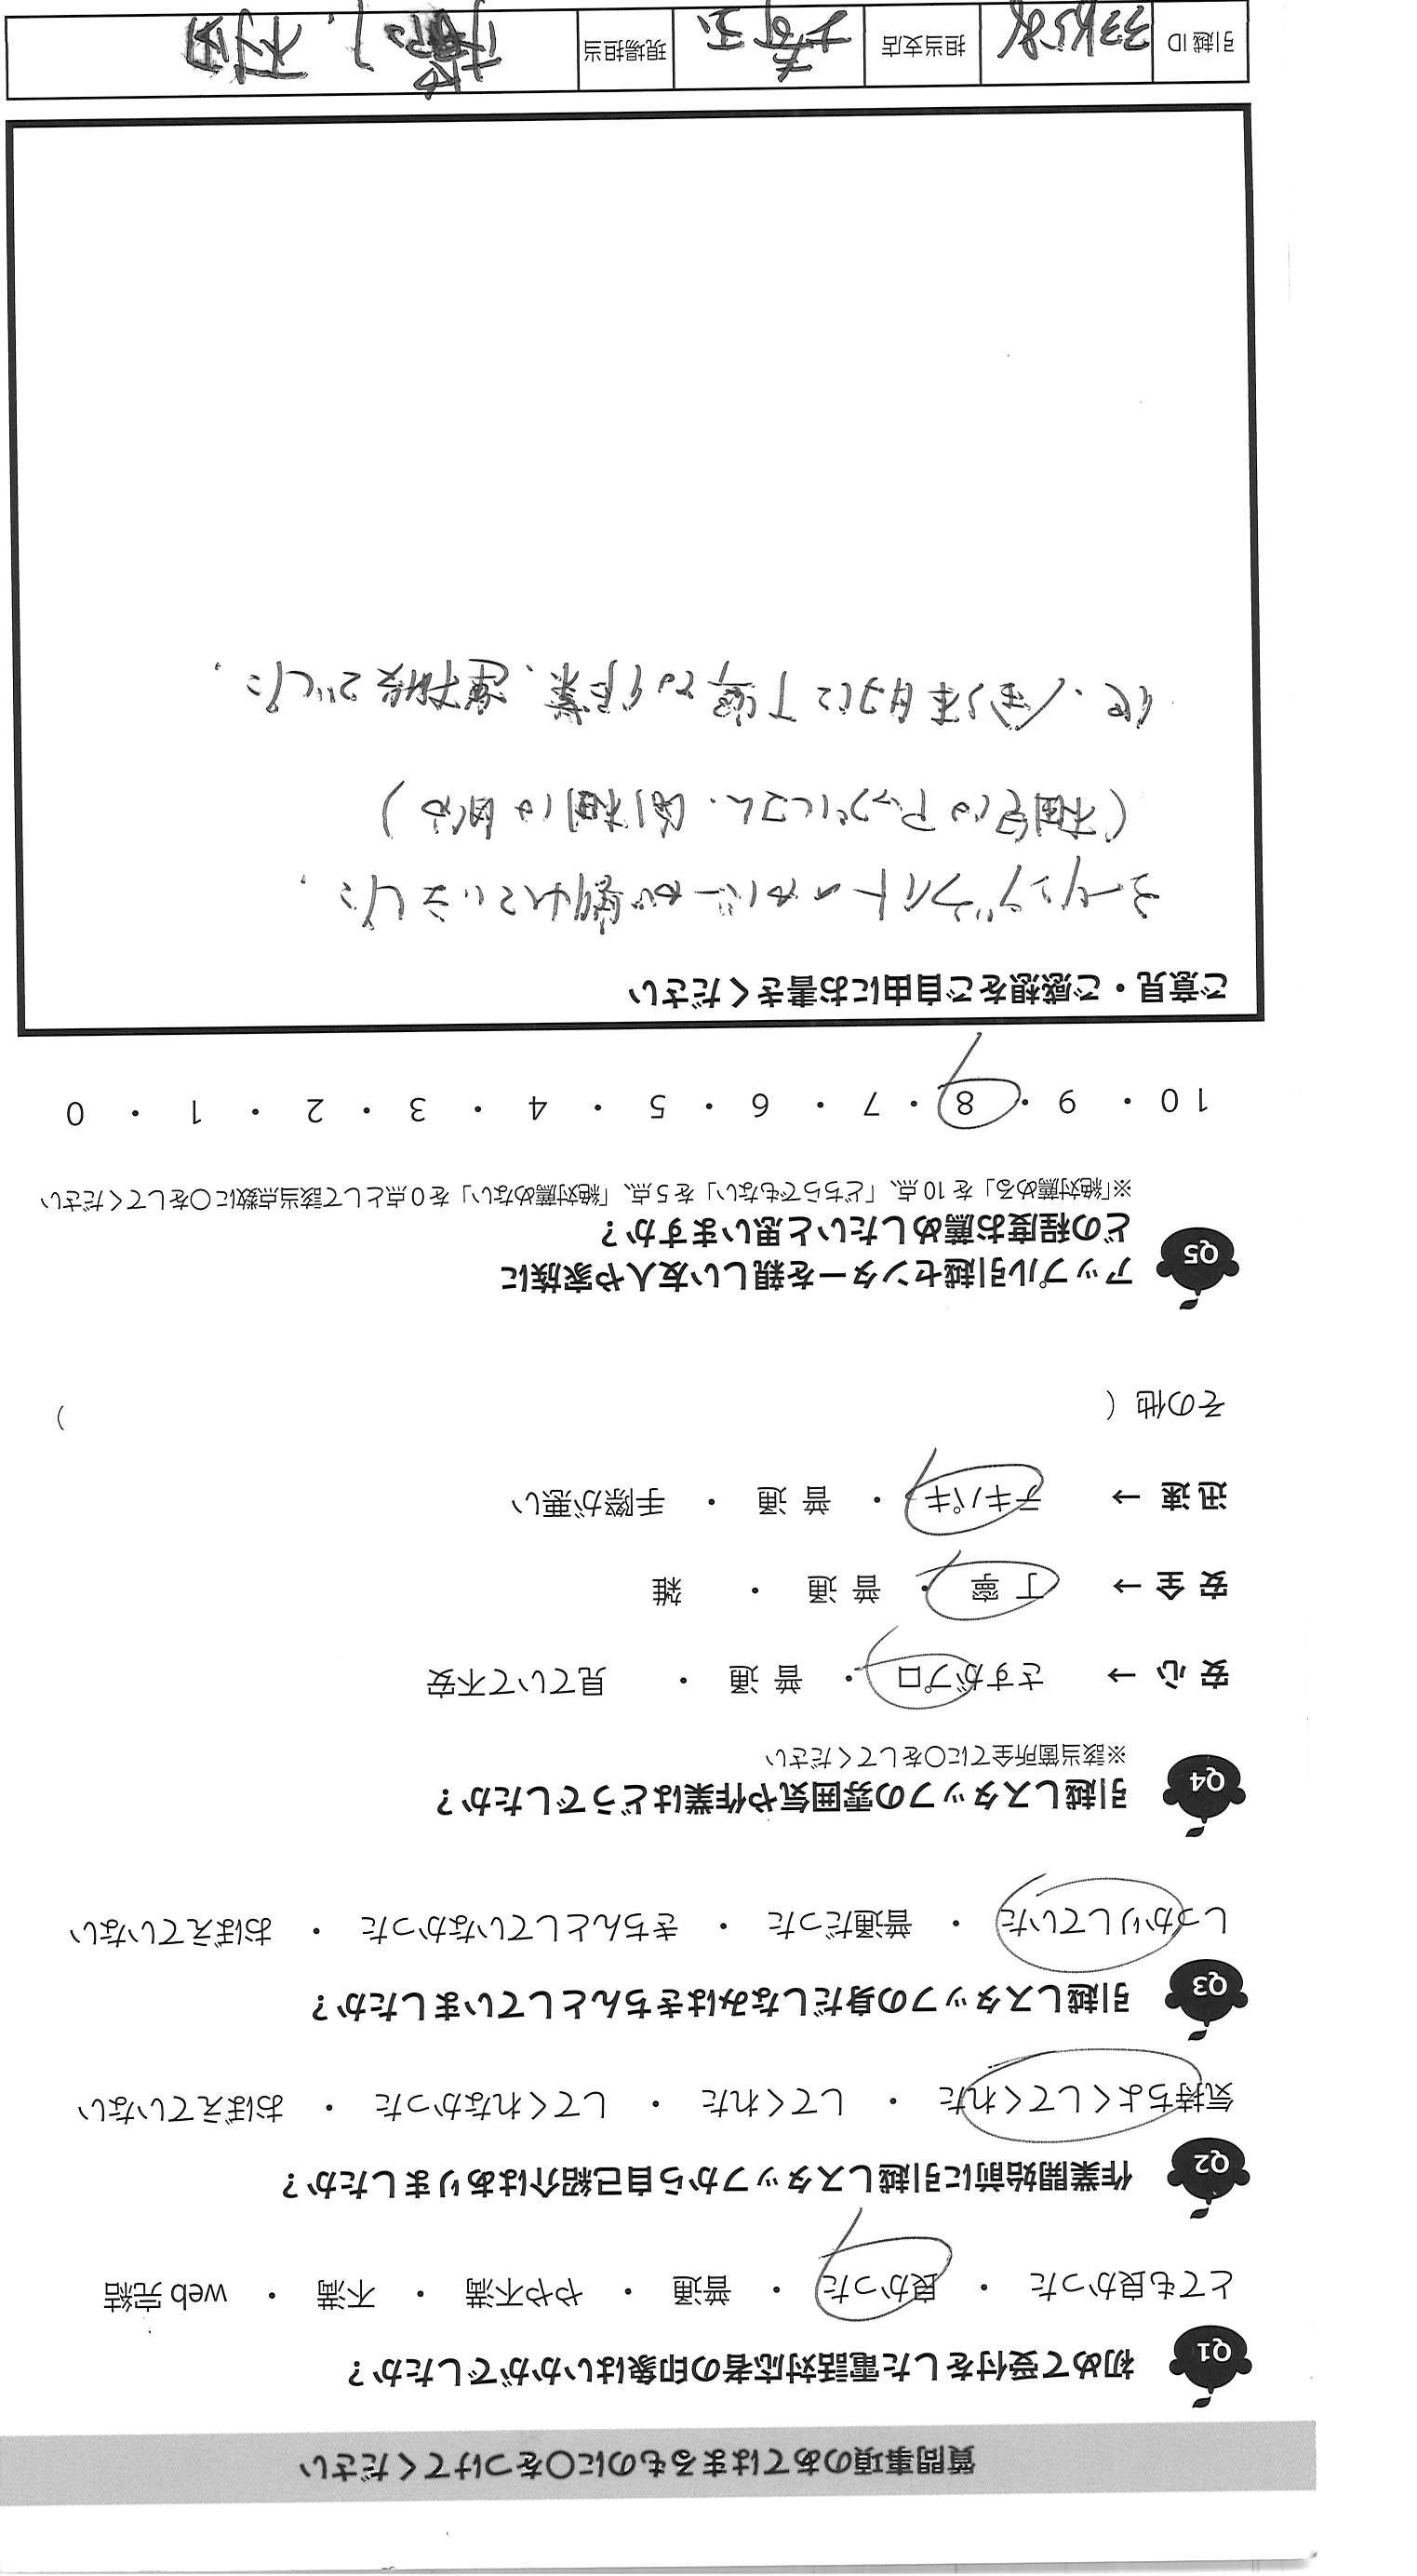 質問事項のあてはまるものに〇をつけてください
Q1 初めて受付をした電話対応者の印象はいかがでしたか？
とても良かった ・ 良かった ・ 普通 ・ やや不満 ・ 不満 ・ web 完結
Q2 作業開始前に引越しスタッフから自己紹介はありましたか？
気持ちよくしてくれた ・ してくれた ・ してくれなかった ・ おぼえていない
Q3 引越しスタッフの身だしなみはきちんとしていましたか？
しっかりしていた ・ 普通だった ・ きちんとしていなかった ・ おぼえていない
Q4 引越しスタッフの雰囲気や作業はどうでしたか？
※該当箇所全てに〇をしてください
安 心 → さすがプロ ・ 普 通 ・ 見ていて不安
安 全 → 丁 寧 ・ 普 通 ・ 雑
迅 速 → テキパキ ・ 普 通 ・ 手際が悪い
その他（ ）
Q5 アップル引越センターを親しい友人や家族に
どの程度お薦めしたいと思いますか？
※「絶対薦める」を 10 点、「どちらでもない」を 5 点、「絶対薦めない」を 0 点として該当点数に〇をしてください
10 ・ 9 ・ 8 ・ 7 ・ 6 ・ 5 ・ 4 ・ 3 ・ 2 ・ 1 ・ 0
ご意見・ご感想をご自由にお書きください
ライトのカバーが割れていました。
（梱包はアップルさん、開梱は自分）
他、全体的に丁寧な作業、運搬でした。
引越 ID 担当支店 埼玉 現場担当